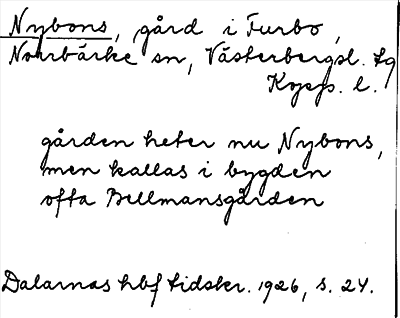 Nybons, gård i Furbo,
Norrbärke sn, Västerbergsl. tg
Kopps. l.
gården heter nu Nybons,
men kallas i bygden
ofta Bellmansgården
Dalarnas hbf tidskr. 1926, s. 24.